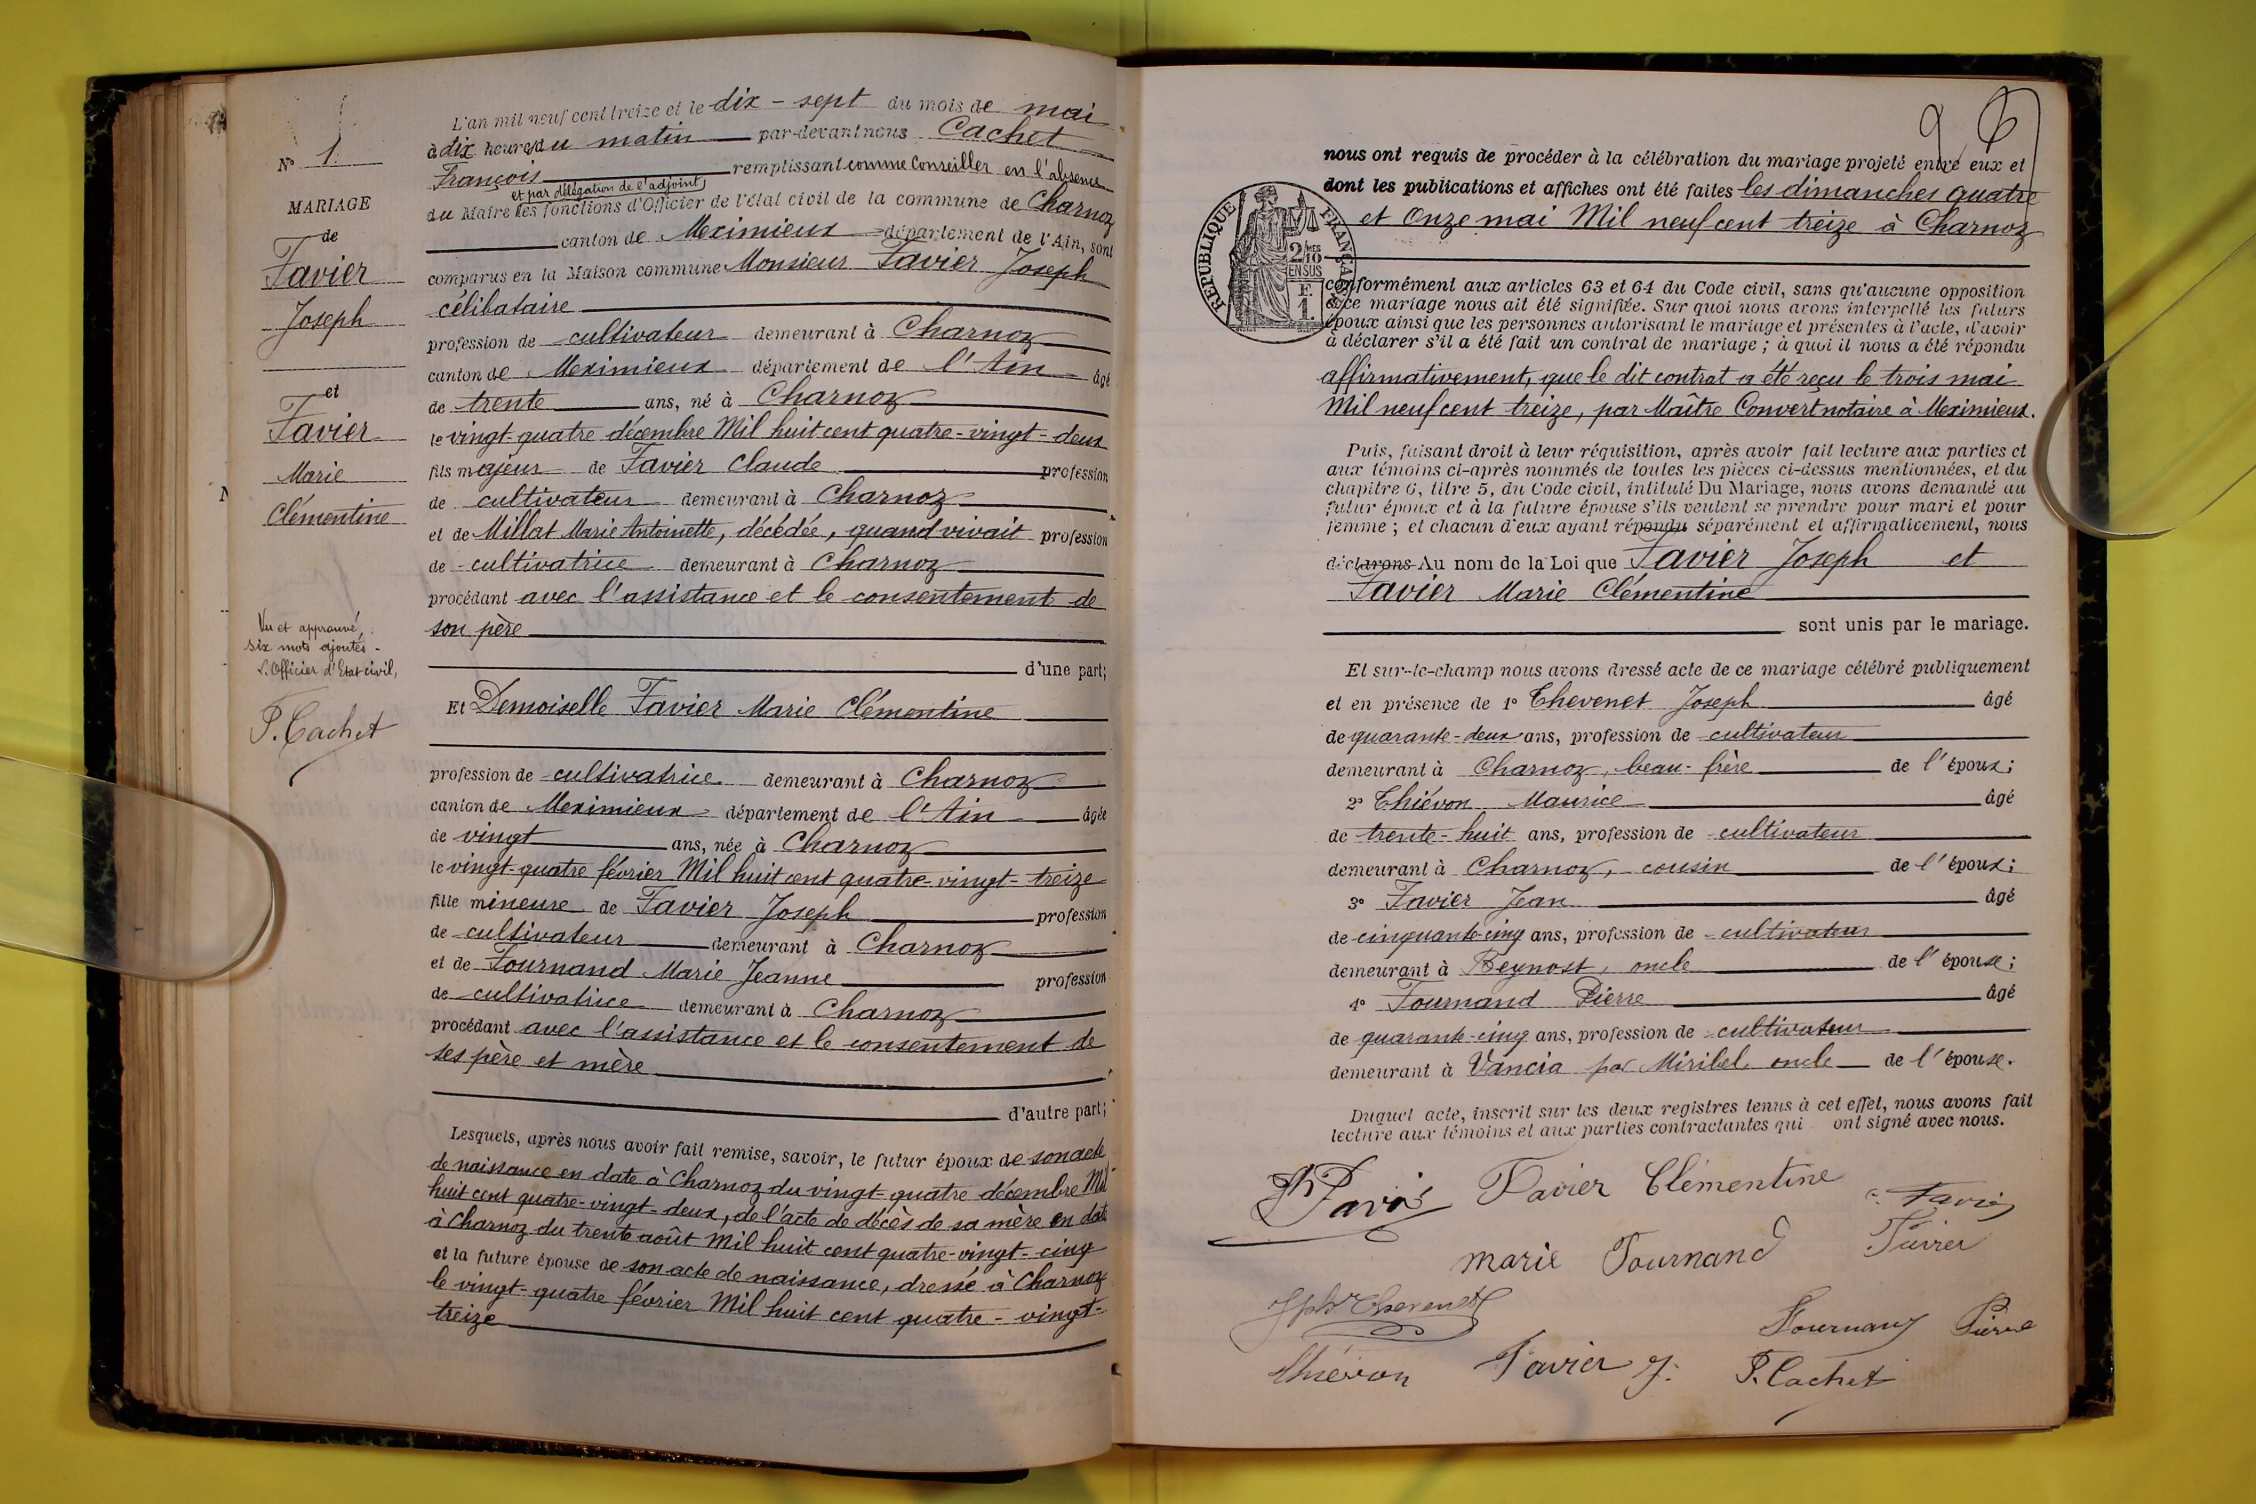 N° 1
MARIAGE
de
Favier
Joseph
et
Favier
Marie
Clémentine
Vu et approuvé,
six mots ajoutés -
L'Officier d'Etat civil,
P. Cachet
L'an mil neuf cent treize et le dix-sept du mois de mai
à dix heures du matin par-devant nous Cachet
François remplissant comme Conseiller en l'absence
et par délégation de l'adjoint
du Maire les fonctions d'Officier de l'état civil de la commune de Charnoz
canton de Meximieux département de l'Ain, sont
comparus en la Maison commune Monsieur Favier Joseph
célibataire
profession de cultivateur demeurant à Charnoz
canton de Meximieux département de l'Ain âgé
de trente ans, né à Charnoz
le vingt-quatre décembre Mil huit cent quatre-vingt-deux
fils majeur de Favier Claude profession
de cultivateur demeurant à Charnoz
et de Millat Marie Antoinette, décédée, quand vivait profession
de cultivatrice demeurant à Charnoz
procédant avec l'assistance et le consentement de
son père
d'une part;
Et Demoiselle Favier Marie Clémentine
profession de cultivatrice demeurant à Charnoz
canton de Meximieux département de l'Ain âgée
de vingt ans, née à Charnoz
le vingt-quatre février Mil huit cent quatre-vingt-treize
fille mineure de Favier Joseph profession
de cultivateur demeurant à Charnoz
et de Tournand Marie Jeanne profession
de cultivatrice demeurant à Charnoz
procédant avec l'assistance et le consentement de
ses père et mère
d'autre part;
Lesquels, après nous avoir fait remise, savoir, le futur époux de son acte
de naissance en date à Charnoz du vingt-quatre décembre Mil
huit cent quatre-vingt-deux, de l'acte de décès de sa mère en date
à Charnoz du trente août Mil huit cent quatre-vingt-cinq
et la future épouse de son acte de naissance, dressé à Charnoz
le vingt-quatre février Mil huit cent quatre-vingt-
treize
nous ont requis de procéder à la célébration du mariage projeté entre eux et
dont les publications et affiches ont été faites les dimanches quatre
et Onze mai Mil neuf cent treize à Charnoz
REPUBLIQUE FRANÇAISE
2/10 MES
EN SUS
F.
1.
conformément aux articles 63 et 64 du Code civil, sans qu'aucune opposition
à ce mariage nous ait été signifiée. Sur quoi nous avons interpellé les futurs
époux ainsi que les personnes autorisant le mariage et présentes à l'acte, d'avoir
à déclarer s'il a été fait un contrat de mariage ; à quoi il nous a été répondu
affirmativement, que le dit contrat a été reçu le trois mai
Mil neuf cent treize, par Maître Convert notaire à Meximieux.
Puis, faisant droit à leur réquisition, après avoir fait lecture aux parties et
aux témoins ci-après nommés de toutes les pièces ci-dessus mentionnées, et du
chapitre 6, titre 5, du Code civil, intitulé Du Mariage, nous avons demandé au
futur époux et à la future épouse s'ils veulent se prendre pour mari et pour
femme ; et chacun d'eux ayant répondu séparément et affirmativement, nous
déclarons Au nom de la Loi que Favier Joseph et
Favier Marie Clémentine
sont unis par le mariage.
Et sur-le-champ nous avons dressé acte de ce mariage célébré publiquement
et en présence de 1° Thevenet Joseph âgé
de quarante-deux ans, profession de cultivateur
demeurant à Charnoz, beau-frère de l'époux;
2° Thiévon Maurice âgé
de trente-huit ans, profession de cultivateur
demeurant à Charnoz, cousin de l'époux;
3° Favier Jean âgé
de cinquante-cinq ans, profession de cultivateur
demeurant à Beynost, oncle de l'épouse;
4° Tournand Pierre âgé
de quarante-cinq ans, profession de cultivateur
demeurant à Vancia par Miribel, oncle de l'épouse.
Duquel acte, inscrit sur les deux registres tenus à cet effet, nous avons fait
lecture aux témoins et aux parties contractantes qui ont signé avec nous.
Favier Clémentine
Favier
marie Tournand
Favier
Jph Thevenet
Tournand Pierre
Thiévon Favier J. P. Cachet